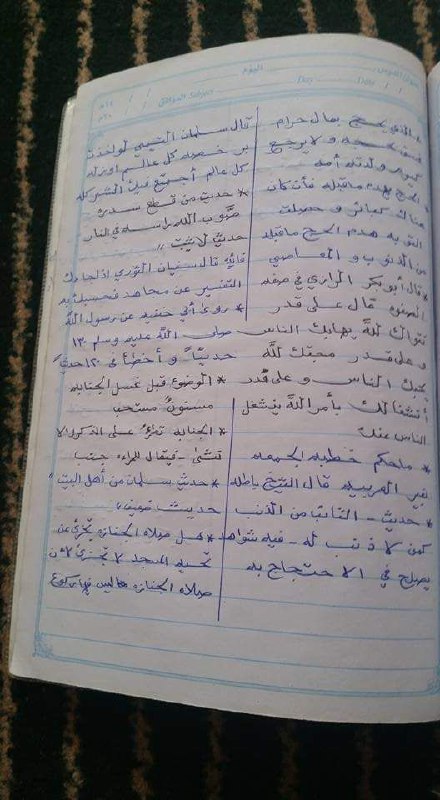 * الذي يحج بمال حرام
فسق حجه ولا يرجع
كيوم ولدته أمه
* الحج يهدم ماقبله فأن كان
هناك كبائر وحصلت
التوبه هدم الحج ماقبله
من الذنوب والمعاصي
* قال أبو بكر الرازي في صفة
الصفوه قال على قدر
تقواك للَّه يهابك الناس
وعلى قدر محبتك للَّه
يحبك الناس وعلى قدر
أنشغالك بأمر اللَّه ينشغل
الناس عنك
* ماحكم خطبه الجمعه
لغير العربيه قال الشيخ باطله
* حديث - التائب من الذنب
كمن لا ذنب له - فيه شواهد
يصلح في الاحتجاج به
قال سلمان
كل عالم
كل عالم
* حديث من قطع سدره
صوَّب اللَّه رأسه في النار
حديث لا يثبت
فائده قال سفيان الثوري اذا جاءك
التفسير عن مجاهد فحسبك به
* روى أبي حنيفه عن رسول اللَّه
صلى اللَّه عليه وسلم ١٣٠
حديثاً وأخطأ في ١٢٠ حديث
* الوضوء قبل غسل الجنابه
مسنون مستحب
* الجنابه تطلق على الذكر والا
نثى - فيقال للمراء جنب
* حديث سلمان من أهل البيت
حديث ضعيف
* هل صلاه الجنازه تجزئ عن
تحيه المسجد لا تجزئ لأن
صلاه الجنازه ماليس فيها ركوع